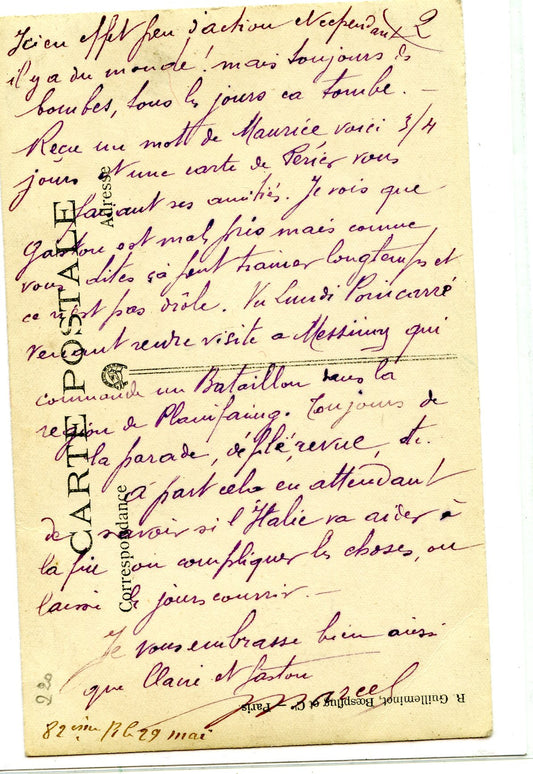 Ici en effet peu d'action et cependant 2
il y a du monde ! mais toujours les
bombes, tous les jours ca tombe. —
Reçu un mot de Maurice voici 3/4
jours et une carte de Périer vous
faisant ses amitiés. Je vois que
Gaston est mal pris mais comme
vous dites ça peut trainer longtemps et
ce n'est pas drôle. Vu Lundi Poincarré
venant rendre visite a Messimy qui
commande un Bataillon dans la
région de Plainfaing. Toujours de
la parade, défilé, revue, etc.
à part cela en attendant
de savoir si l'Italie va aider à
la fin ou compliquer les choses, on
laisse les jours courrir. —
Je vous embrasse bien ainsi
que Claire et Gaston
Marcel
CARTE POSTALE
Adresse
Correspondance
R. Guilleminot, Bœspflug et Cie – Paris
220
29 mai